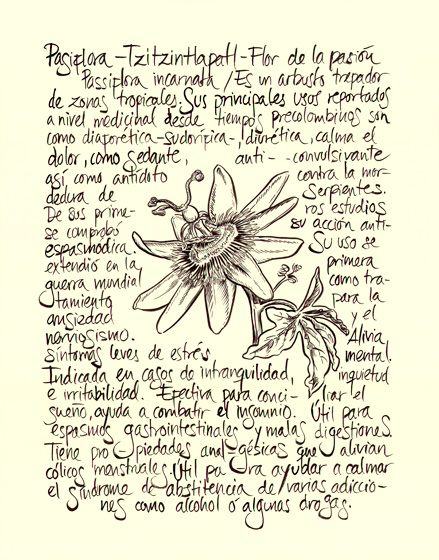 Pasiflora - Tzitzintlapatl - Flor de la pasión
Passiflora incarnata / Es un arbusto trepador
de zonas tropicales. Sus principales usos reportados
a nivel medicinal desde tiempos precolombinos son
como diaporética - sudorípica -, diurética, calma el
dolor, como sedante, anti- -convulsivante
así como antídoto contra la mor-
dedura de serpientes.
De sus prime- ros estudios
se comprobó su acción anti-
espasmódica. Su uso se
extendió en la primera
guerra mundial como tra-
tamiento para la
ansiedad y el
nerviosismo. Alivia
síntomas leves de estrés mental.
Indicada en casos de intranquilidad, inquietud
e irritabilidad. Efectiva para conci- liar el
sueño, ayuda a combatir el insomnio. Útil para
espasmos gastrointestinales y malas digestiones.
Tiene propiedades analgésicas que alivian
cólicos menstruales. Útil para ayudar a calmar
el síndrome de abstitencia de varias adiccio-
nes como alcohol o algunas drogas.